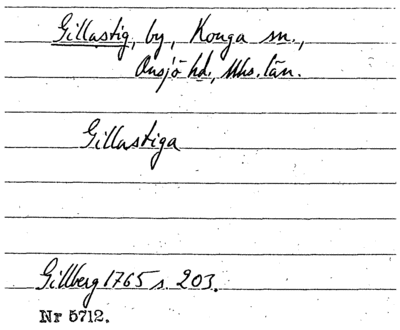 Gillastig, by, Konga sn.,
Onsjö hd., Mhs. län.
Gillastiga
Gillberg 1765 s. 203.
Nr 5712.